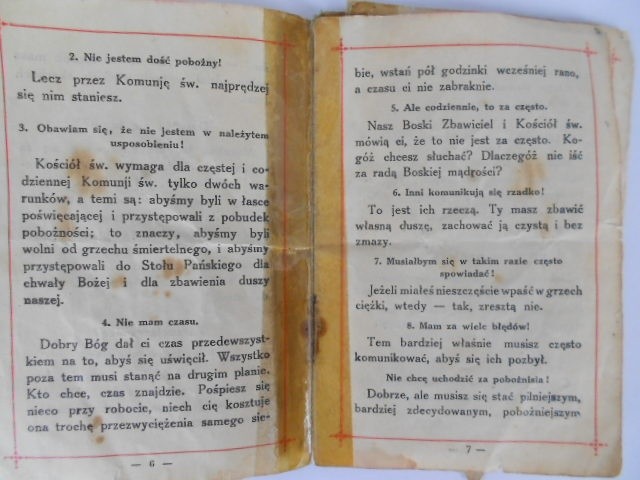 2. Nie jestem dość pobożny!
Lecz przez Komunję św. najprędzej
się nim staniesz.
3. Obawiam się, że nie jestem w należytem
usposobieniu!
Kościół św. wymaga dla częstej i co-
dziennej Komunji św. tylko dwóch wa-
runków, a temi są: abyśmy byli w łasce
poświęcającej i przystępowali z pobudek
pobożności; to znaczy, abyśmy byli
wolni od grzechu śmiertelnego, i abyśmy
przystępowali do Stołu Pańskiego dla
chwały Bożej i dla zbawienia duszy
naszej.
4. Nie mam czasu.
Dobry Bóg dał ci czas przedewszyst-
kiem na to, abyś się uświęcił. Wszystko
poza tem musi stanąć na drugim planie.
Kto chce, czas znajdzie. Pośpiesz się
nieco przy robocie, niech cię kosztuje
ona trochę przezwyciężenia samego sie-
— 6 —
bie, wstań pół godzinki wcześniej rano,
a czasu ci nie zabraknie.
5. Ale codziennie, to za często.
Nasz Boski Zbawiciel i Kościół św.
mówią ci, że to nie jest za często. Ko-
góż chcesz słuchać? Dlaczegóż nie iść
za radą Boskiej mądrości?
6. Inni komunikują się rzadko!
To jest ich rzeczą. Ty masz zbawić
własną duszę, zachować ją czystą i bez
zmazy.
7. Musiałbym się w takim razie często
spowiadać!
Jeżeli miałeś nieszczęście wpaść w grzech
ciężki, wtedy — tak, zresztą nie.
8. Mam za wiele błędów!
Tem bardziej właśnie musisz często
komunikować, abyś się ich pozbył.
Nie chcę uchodzić za pobożnisia!
Dobrze, ale musisz się stać pilniejszym,
bardziej zdecydowanym, pobożniejszym
7 —